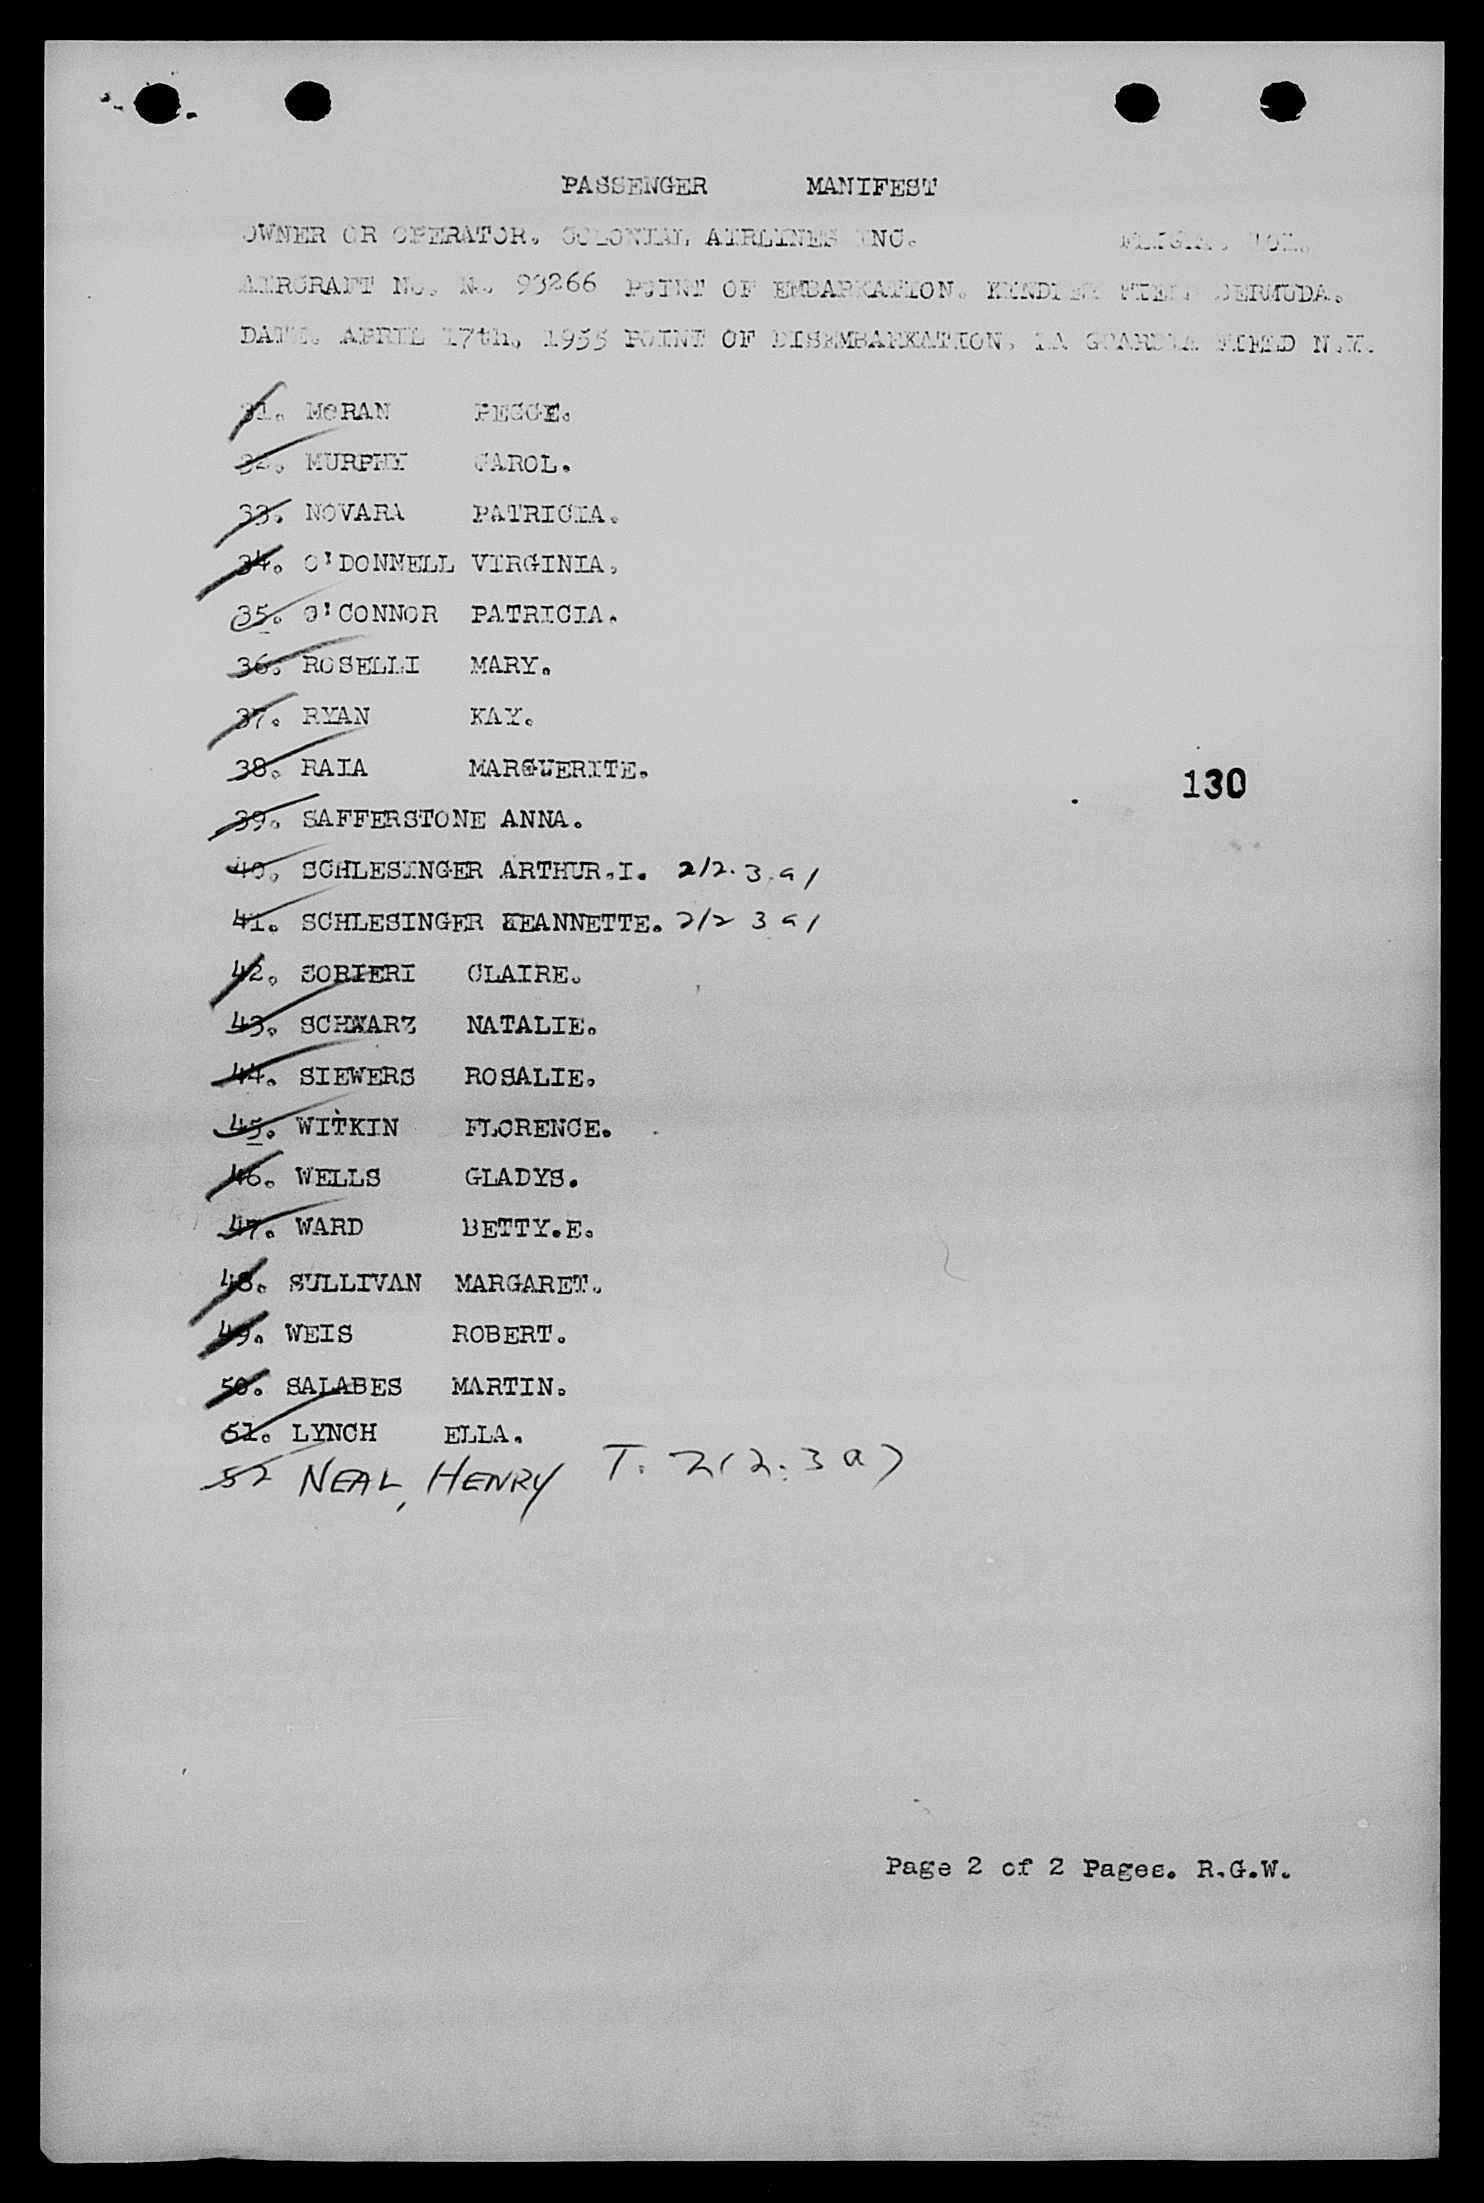 PASSENGER MANIFEST
OWNER OR OPERATOR. COLONIAL AIRLINES INC.
AIRCRAFT No. N. 93266 POINT OF EMBARKATION. KINDLEY FIELD BERMUDA.
DATE. APRIL 17th, 1955 POINT OF DISEMBARKATION, LA GUARDIA FIELD N.Y.
31. MORAN PEGGE.
32. MURPHY CAROL.
33. NOVARA PATRICIA.
34. O'DONNELL VIRGINIA,
35. O'CONNOR PATRICIA.
36. ROSELLI MARY.
37. RYAN KAY.
38. RAIA MARGUERITE.
130
39. SAFFERSTONE ANNA.
40. SCHLESINGER ARTHUR.I. 212.3.a1
41. SCHLESINGER JEANNETTE. 212 3 a1
42. SORIERI CLAIRE.
43. SCHWARZ NATALIE.
44. SIEWERS ROSALIE,
45. WITKIN FLORENCE.
46. WELLS GLADYS.
47. WARD BETTY.E.
48. SULLIVAN MARGARET.
49. WEIS ROBERT.
50. SALABES MARTIN.
51. LYNCH ELLA.
52 NEAL, HENRY T. 2(2.3a)
Page 2 of 2 Pages. R.G.W.